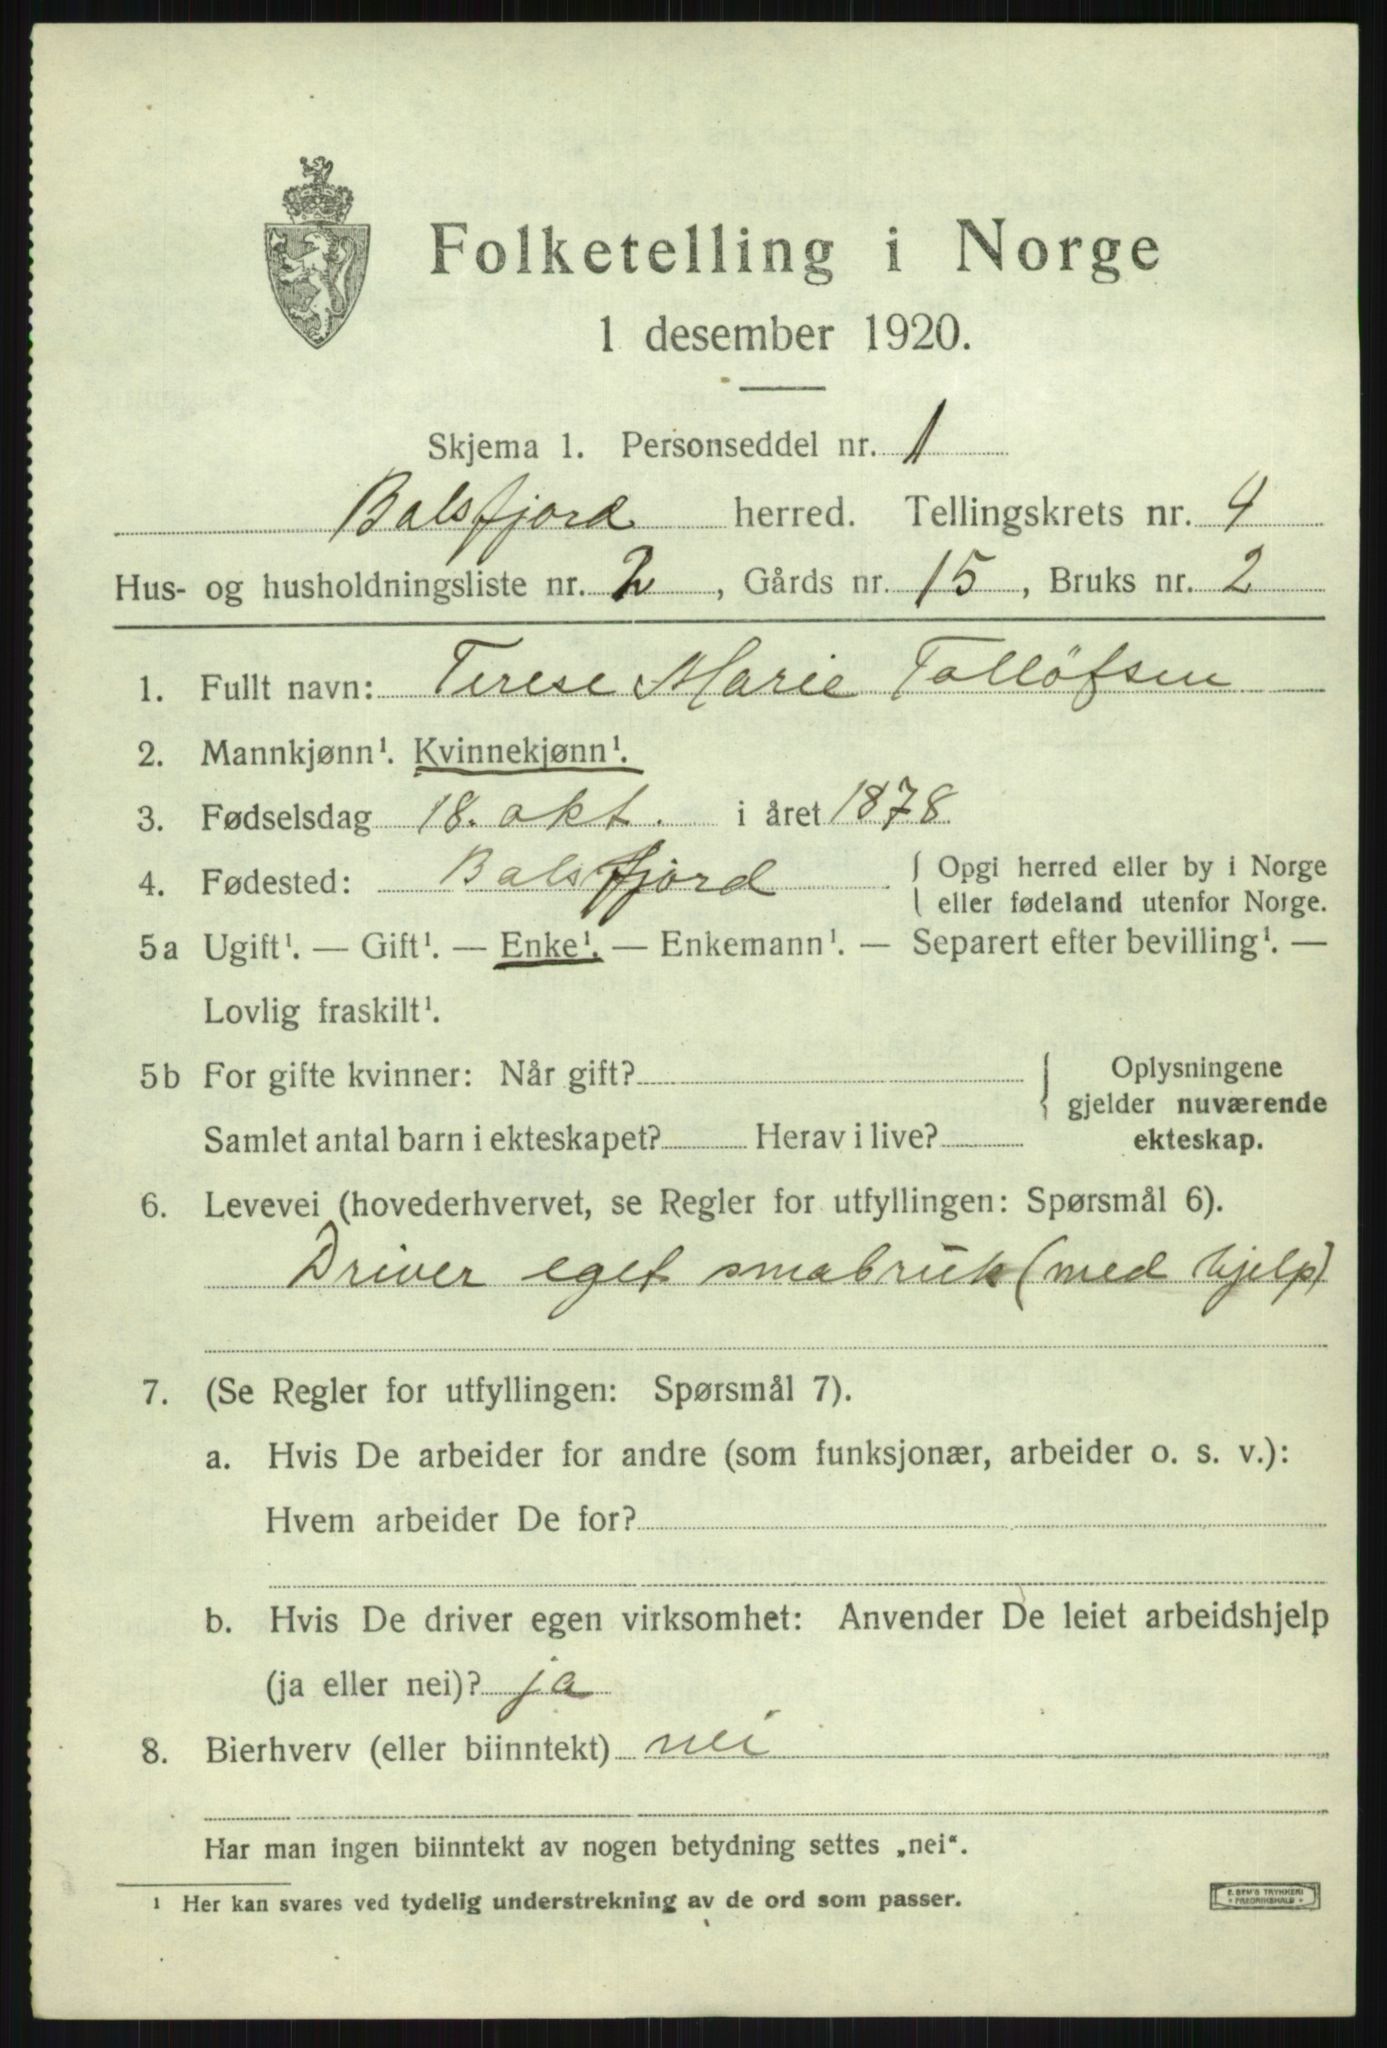 Folketelling i Norge
1 desember 1920.
Skjema 1. Personseddel nr. 1
Balsfjord herred. Tellingskrets nr. 4
Hus- og husholdningsliste nr. 2, Gårds nr. 15, Bruks nr. 2
1. Fullt navn: Terese Marie Tolløfsen
2. Mannkjønn¹. Kvinnekjønn¹.
3. Fødselsdag 18. okt. i året 1878
4. Fødested: Balsfjord { Opgi herred eller by i Norge
eller fødeland utenfor Norge.
5a Ugift¹. — Gift¹. — Enke¹. — Enkemann¹. — Separert efter bevilling¹. —
Lovlig fraskilt¹.
5b For gifte kvinner: Når gift?
Samlet antal barn i ekteskapet? Herav i live?
{ Oplysningene
gjelder nuværende
ekteskap.
6. Levevei (hovederhvervet, se Regler for utfyllingen: Spørsmål 6).
Driver eget smabruk (med hjelp)
7. (Se Regler for utfyllingen: Spørsmål 7).
a. Hvis De arbeider for andre (som funksjonær, arbeider o. s. v.):
Hvem arbeider De for?
b. Hvis De driver egen virksomhet: Anvender De leiet arbeidshjelp
(ja eller nei)? ja
8. Bierhverv (eller biinntekt) nei
Har man ingen biinntekt av nogen betydning settes „nei“.
¹ Her kan svares ved tydelig understrekning av de ord som passer.
E. SEM'S TRYKKERI
• FREDRIKSHALD •